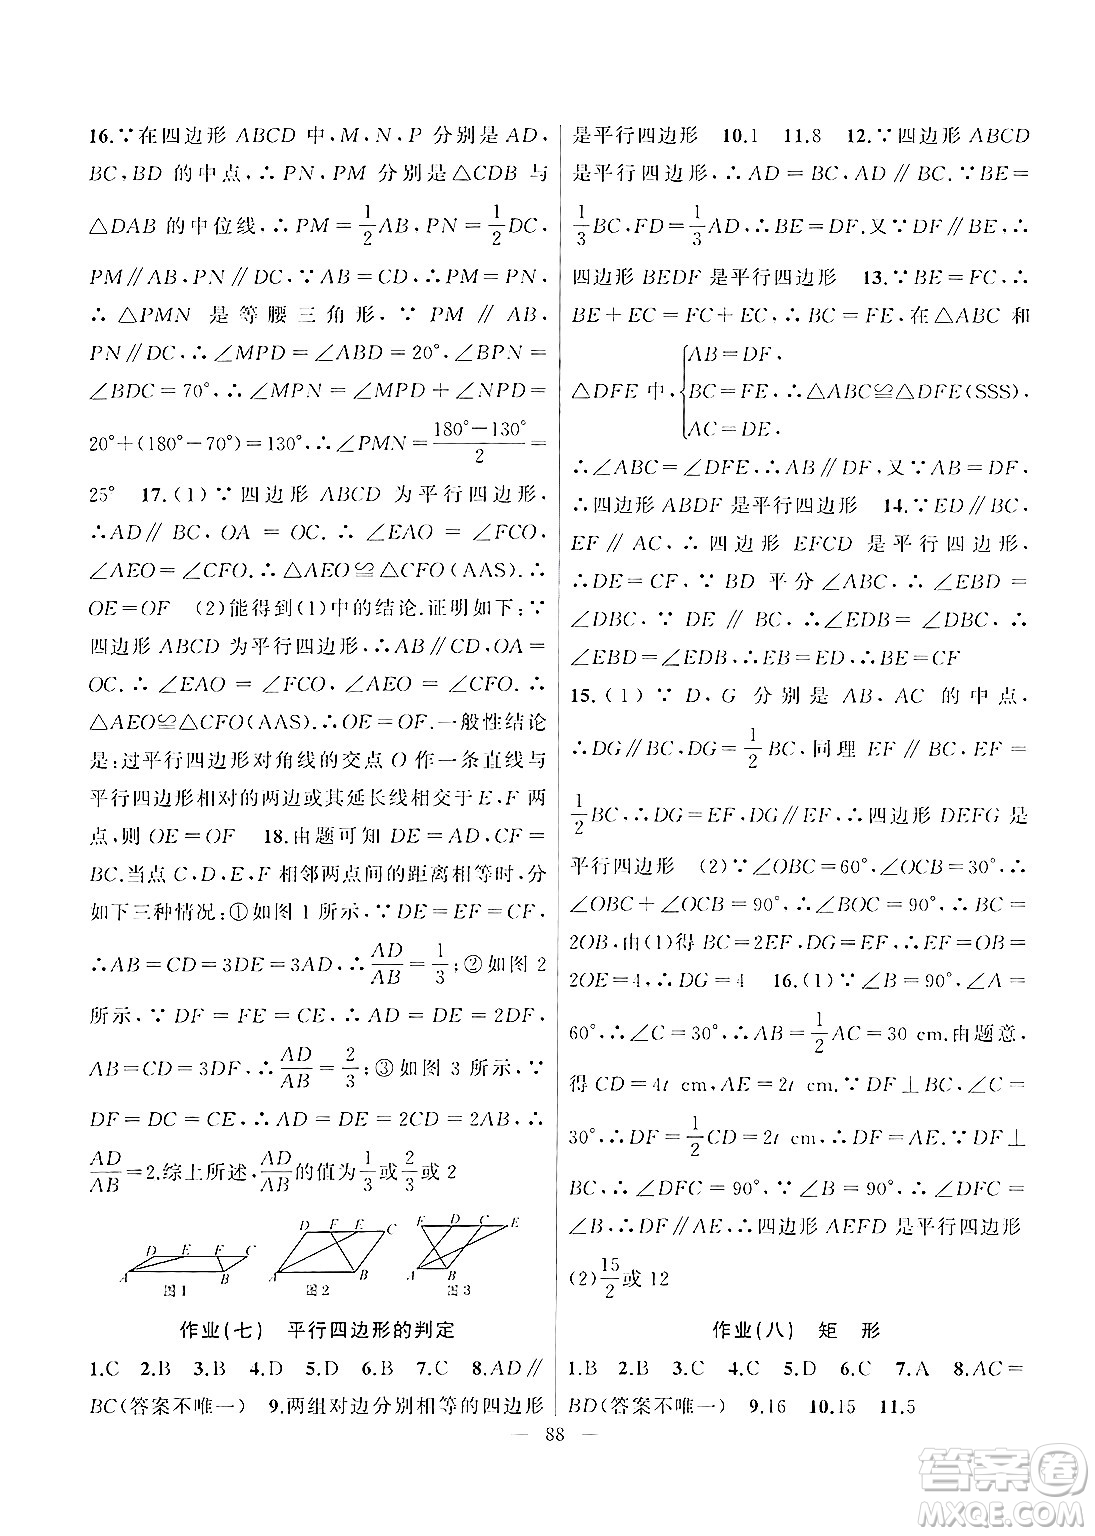 16.∵在四边形 ABCD 中,M,N,P 分别是 AD,
BC,BD 的中点,∴PN,PM 分别是△CDB 与
△DAB 的中位线,∴PM=1/2AB,PN=1/2DC,
PM∥AB,PN∥DC,∵AB=CD,∴PM=PN,
∴△PMN 是等腰三角形,∵PM∥AB,
PN∥DC,∴∠MPD=∠ABD=20°,∠BPN=
∠BDC=70°,∴∠MPN=∠MPD+∠NPD=
20°+(180°-70°)=130°,∴∠PMN=(180°-130°)/2=
25° 17.(1)∵四边形 ABCD 为平行四边形,
∴AD∥BC,OA=OC.∴∠EAO=∠FCO,
∠AEO=∠CFO.∴△AEO≌△CFO(AAS).∴
OE=OF (2)能得到(1)中的结论.证明如下:∵
四边形 ABCD 为平行四边形,∴AB∥CD,OA=
OC.∴∠EAO=∠FCO,∠AEO=∠CFO.∴
△AEO≌△CFO(AAS).∴OE=OF.一般性结论
是:过平行四边形对角线的交点 O 作一条直线与
平行四边形相对的两边或其延长线相交于 E,F 两
点,则 OE=OF 18.由题可知 DE=AD,CF=
BC.当点 C,D,E,F 相邻两点间的距离相等时,分
如下三种情况:①如图 1 所示,∵DE=EF=CF,
∴AB=CD=3DE=3AD,∴AD/AB=1/3;②如图 2
所示,∵DF=FE=CE,∴AD=DE=2DF,
AB=CD=3DF,∴AD/AB=2/3;③如图 3 所示,∵
DF=DC=CE,∴AD=DE=2CD=2AB,∴
AD/AB=2.综上所述,AD/AB的值为1/3或2/3或 2
D E F C A B 图 1
D F E C A B 图 2
F D C E A B 图 3
作业(七) 平行四边形的判定
1.C 2.B 3.B 4.D 5.D 6.B 7.C 8.AD∥
BC(答案不唯一) 9.两组对边分别相等的四边形
是平行四边形 10.1 11.8 12.∵四边形 ABCD
是平行四边形,∴AD=BC,AD∥BC.∵BE=
1/3BC,FD=1/3AD,∴BE=DF.又∵DF∥BE,∴
四边形 BEDF 是平行四边形 13.∵BE=FC,∴
BE+EC=FC+EC,∴BC=FE,在△ABC 和
△DFE 中,{AB=DF,
BC=FE,∴△ABC≌△DFE(SSS),
AC=DE,
∴∠ABC=∠DFE,∴AB∥DF,又∵AB=DF,
∴四边形 ABDF 是平行四边形 14.∵ED∥BC,
EF∥AC,∴四边形 EFCD 是平行四边形,
∴DE=CF,∵BD 平分∠ABC,∴∠EBD=
∠DBC,∵DE∥BC,∴∠EDB=∠DBC,∴
∠EBD=∠EDB,∴EB=ED,∴BE=CF
15.(1)∵D,G 分别是 AB,AC 的中点,
∴DG∥BC,DG=1/2BC,同理 EF∥BC,EF=
1/2BC,∴DG=EF,DG∥EF,∴四边形 DEFG 是
平行四边形 (2)∵∠OBC=60°,∠OCB=30°,∴
∠OBC+∠OCB=90°,∴∠BOC=90°,∴BC=
2OB,由(1)得 BC=2EF,DG=EF,∴EF=OB=
2OE=4,∴DG=4 16.(1)∵∠B=90°,∠A=
60°,∴∠C=30°,∴AB=1/2AC=30 cm.由题意,
得 CD=4t cm,AE=2t cm.∵DF⊥BC,∠C=
30°,∴DF=1/2CD=2t cm,∴DF=AE.∵DF⊥
BC,∴∠DFC=90°,∵∠B=90°,∴∠DFC=
∠B,∴DF∥AE,∴四边形 AEFD 是平行四边形
(2)15/2或 12
作业(八) 矩 形
1.B 2.B 3.D 4.C 5.C 6.C 7.A 8.AC=
BD(答案不唯一) 9.16 10.15 11.5
— 88 —
答案圈
MXQE.COM